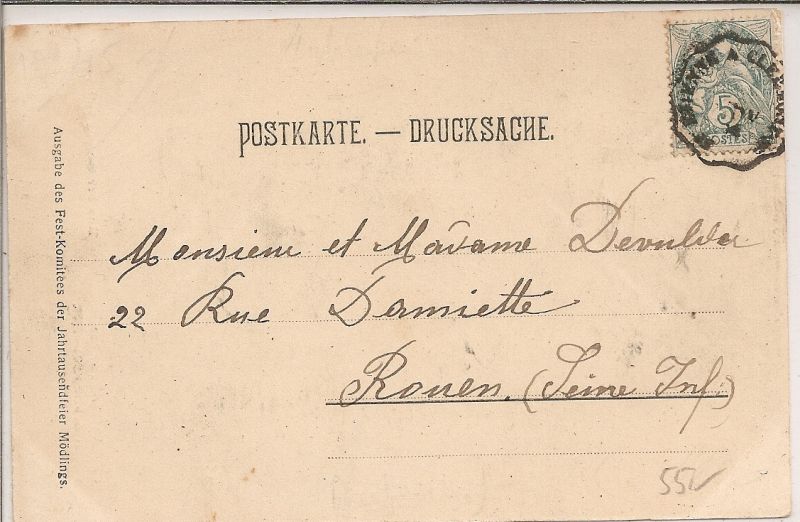 POSTKARTE. — DRUCKSACHE.
5
POSTES
Monsieur et Madame Devulder
22 Rue Damiette
Rouen. (Seine Inf)
Ausgabe des Fest-Komitees der Jahrtausendfeier Mödlings.